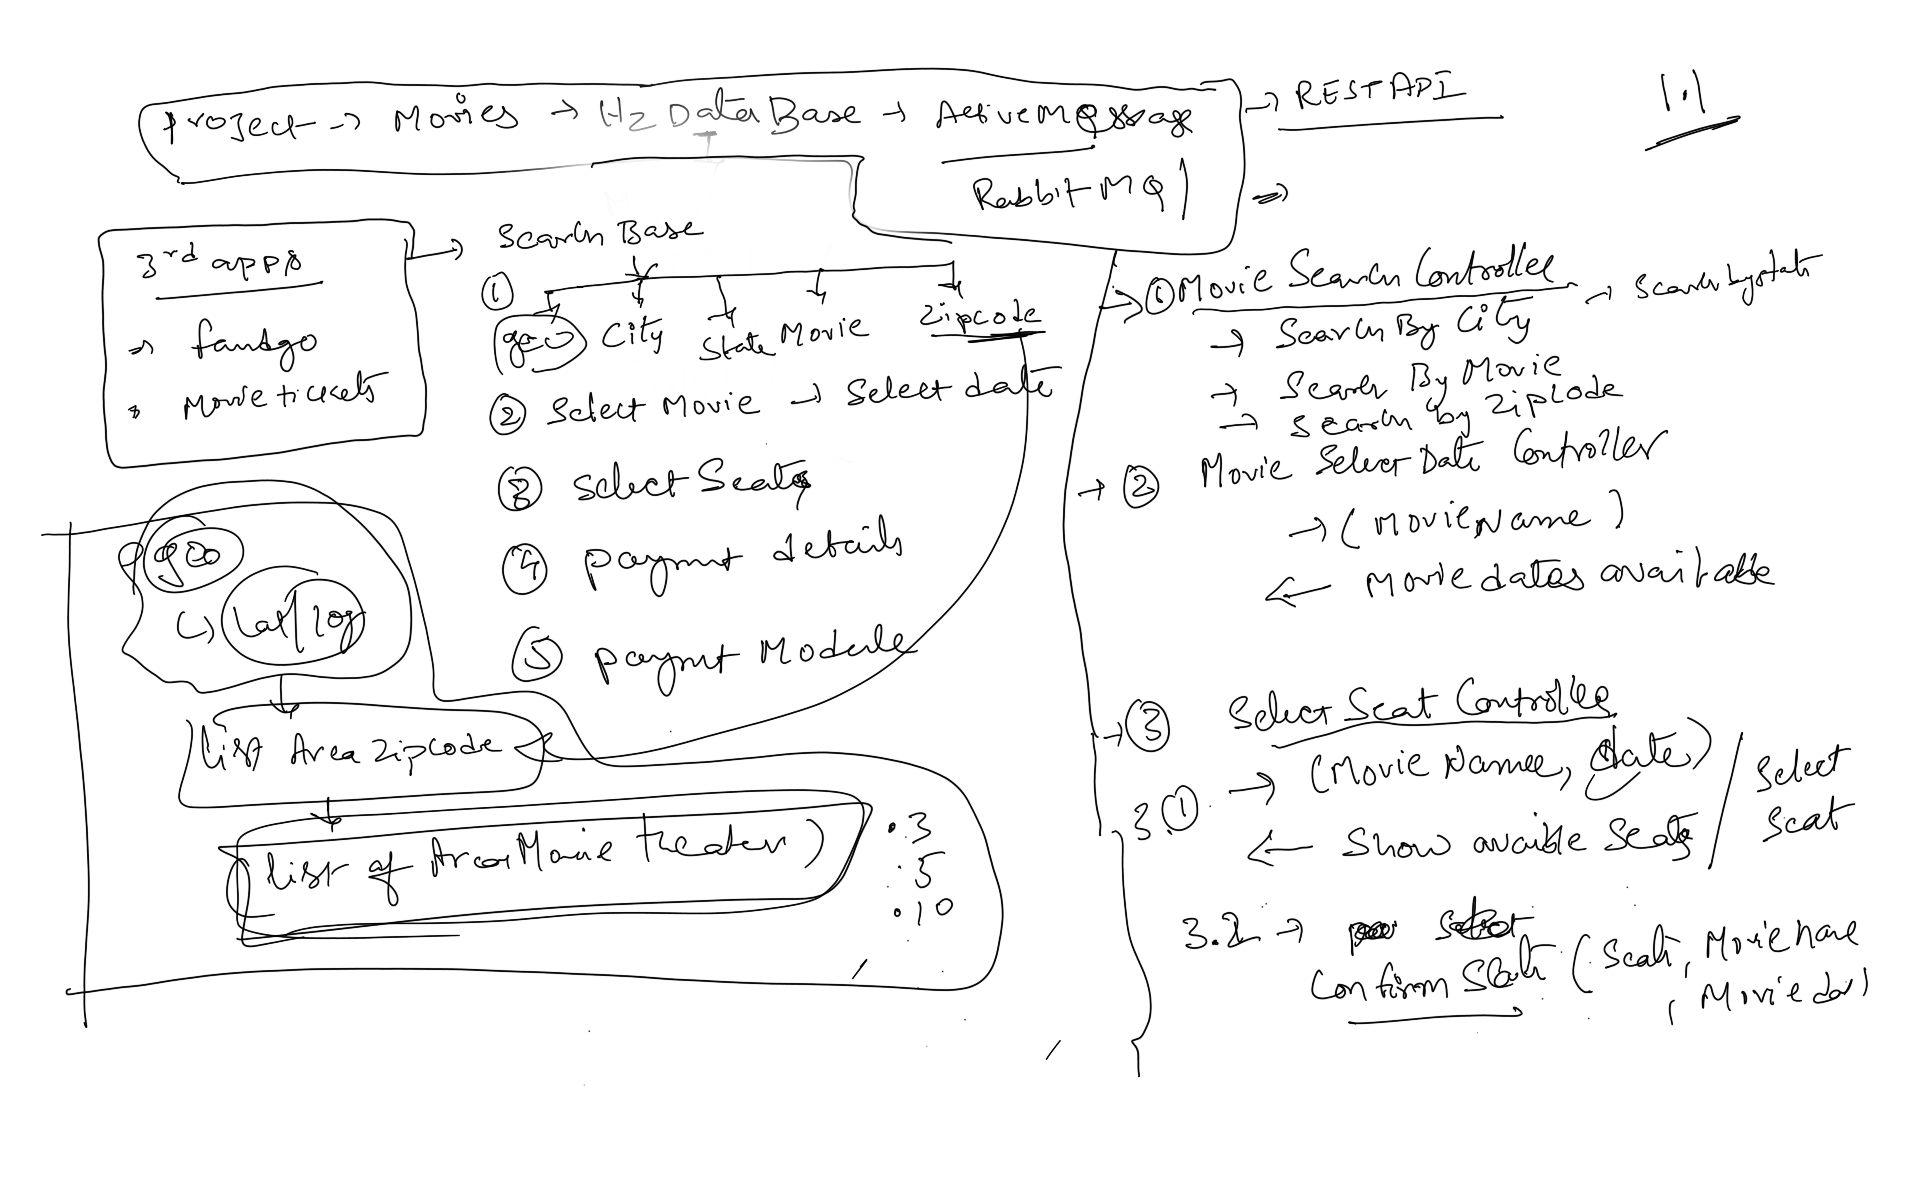 Project → Movies → H2 DataBase → ActiveMQssage
RabbitMQ
→ REST API
1.1
3rd apps
→ fandgo
Movie tickets
→ Search Base
① geo City State Movie Zipcode
② Select Movie → Select date
③ Select Seats
④ paymnt details
⑤ paymnt Module
geo
↳ Lat/log
list Area Zipcode
list of Area Movie theater)
• 3
• 5
• 10
→ ① Movie Search Controller → Search by stat
→ Search By City
→ Search By Movie
→ Search by ZipCode
→ ② Movie Select Date Controller
→ (MovieName)
← Movie dates available
→ ③ Select Seat Controller
3.① → (Movie Name, date) / Select Seat
← Show avaible Seats
3.2 →
Confirm (Seat, Moviename
, Movie dat)